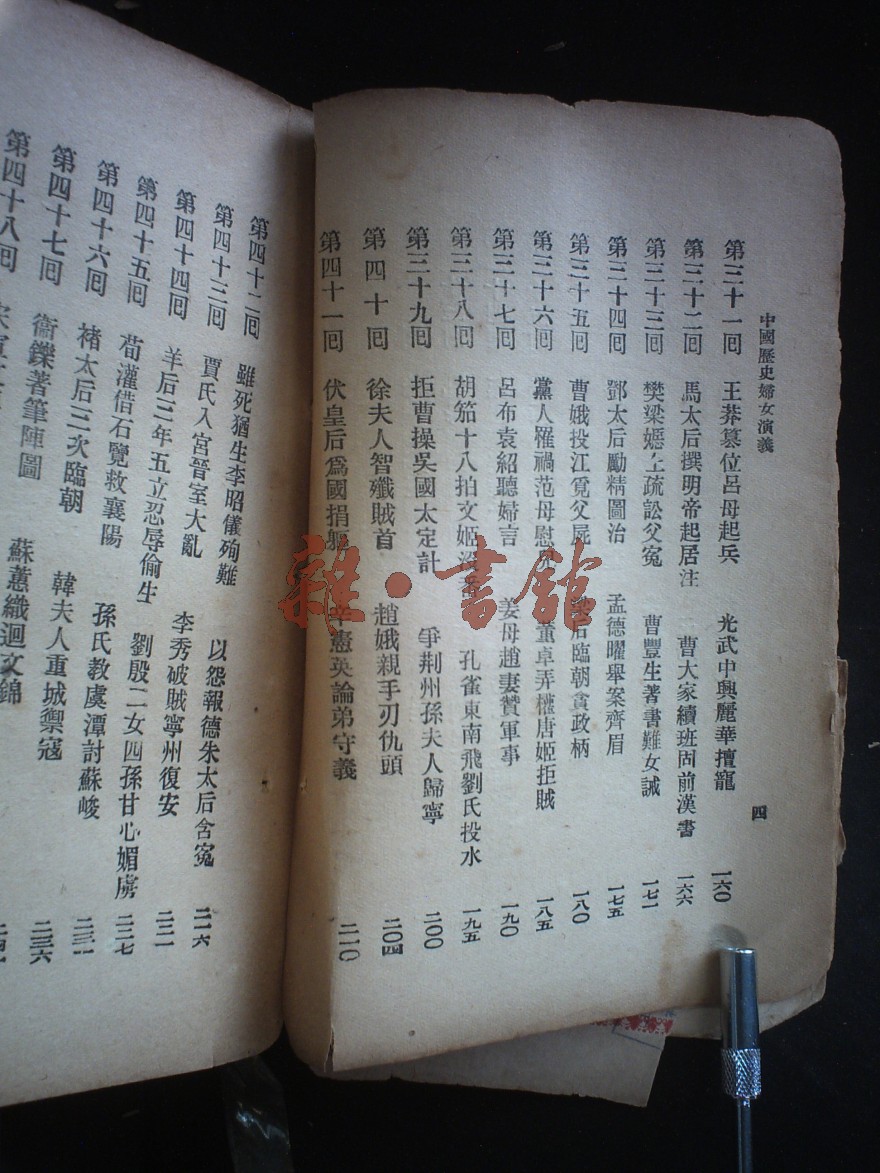 中國歷史婦女演義
四
第三十一回 王莽篡位呂母起兵 光武中興麗華擅寵 一六〇
第三十二回 馬太后撰明帝起居注 曹大家續班固前漢書 一六六
第三十三回 樊梁嫕上疏訟父冤 曹豐生著書難女誡 一七一
第三十四回 鄧太后勵精圖治 孟德曜舉案齊眉 一七五
第三十五回 曹娥投江覓父屍 后臨朝貪政柄 一八〇
第三十六回 黨人罹禍范母慰 董卓弄權唐姬拒賊 一八五
第三十七回 呂布袁紹聽婦言 姜母趙妻贊軍事 一九〇
第三十八回 胡笳十八拍文姬 孔雀東南飛劉氏投水 一九五
第三十九回 拒曹操吳國太定計 爭荆州孫夫人歸寧 二〇〇
第四十回 徐夫人智殲賊首 趙娥親手刃仇頭 二〇四
第四十一回 伏皇后爲國捐軀 辛憲英論弟守義 二一〇
第四十二回 雖死猶生李昭儀殉難 以怨報德朱太后含冤 二一六
第四十三回 賈氏入宮晉室大亂 李秀破賊寧州復安
第四十四回 羊后三年五立忍辱偷生 劉殷二女四孫甘心媚虜 二二七
第四十五回 荀灌借石覽救襄陽 孫氏教虞潭討蘇峻
第四十六回 褚太后三次臨朝 韓夫人重城禦寇 二三六
第四十七回 衞鑠著筆陣圖 蘇蕙織迴文錦
第四十八回
雜·書館